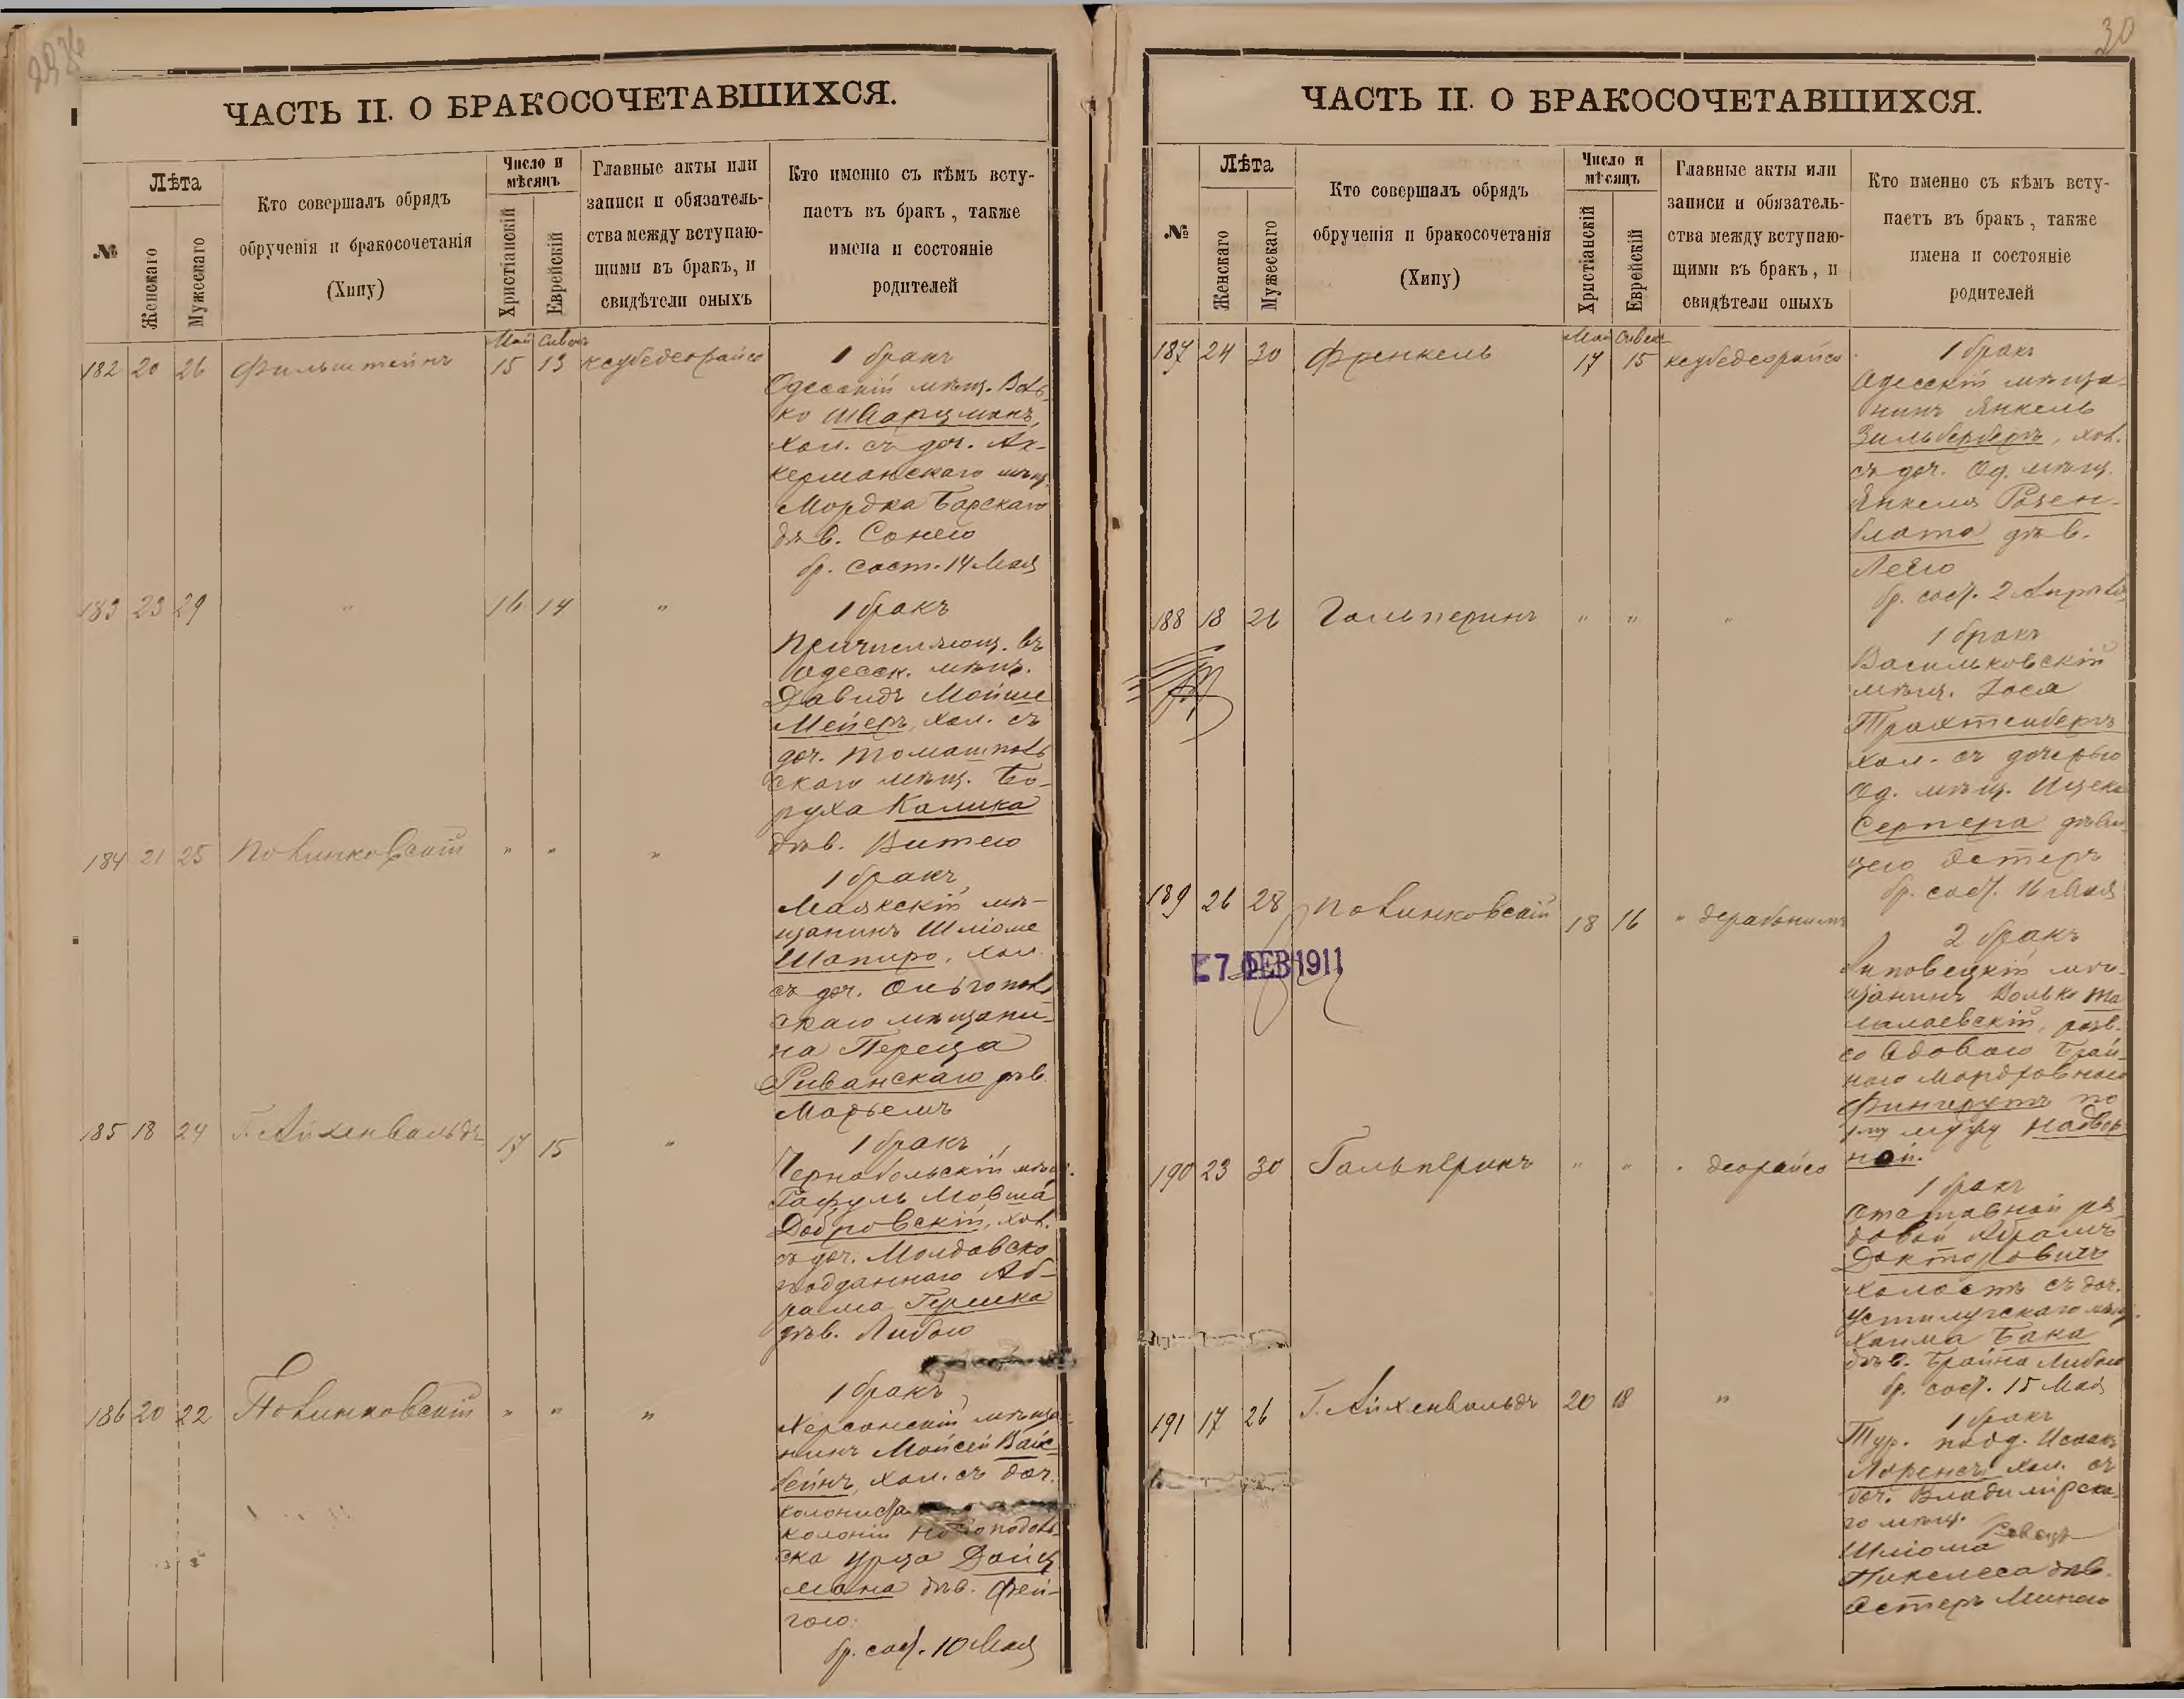 ЧАСТЬ II. О БРАКОСОЧЕТАВШИХСЯ.
№
Лѣта
Женскаго
Мужескаго
Кто совершалъ обрядъ
обрученія и бракосочетанія
(Хипу)
Число и
мѣсяцъ
Христіанскій
Еврейскій
Главные акты или
записи и обязатель-
ства между вступаю-
щими въ бракъ, и
свидѣтели оныхъ
Кто именно съ кѣмъ всту-
паетъ въ бракъ, также
имена и состояніе
родителей
Май Сивонъ
182 20 26 Фильштейнъ 15 13 ксубедеорайсо
1 бракъ
Одесскій мѣщ. Воль-
ко Шварцманъ,
хол. съ доч. Ак-
керманскаго мѣщ.
Мордка Барскаго
дѣв. Сонею
бр. сост. 14 Мая
183 23 29 " 16 14 "
1 бракъ
Причисляющ. въ
Одесск. мѣщ.
Давидъ Мойше
Мейеръ, хол. съ
доч. Томашполь
скаго мѣщ. Бо-
руха Калика
дѣв. Витею
184 21 25 Полинковскій " " "
1 бракъ
Маякскій мѣ-
щанинъ Шліоме
Шапиро, хол.
съ доч. Ольгополь
скаго мѣщани-
на Переца
дѣв.
Марьемъ
185 18 24 Г. Айхенвальдъ 17 15 "
1 бракъ
Чернобольскій мѣщ.
Мовша
Добровскій, хол.
съ доч. Молдавско
подданнаго Аб-
рама Гершка
дѣв. Либою
186 20 22 Полинковскій " " "
1 бракъ
Херсонскій мѣща-
нинъ Мойсей Вайс-
бейнъ, хол. съ доч.
колониста
колоніи
ска Урца Дайц
мана дѣв. Фей-
гою.
бр. сост. 10 Мая
30
ЧАСТЬ II. О БРАКОСОЧЕТАВШИХСЯ.
№
Лѣта
Женскаго
Мужескаго
Кто совершалъ обрядъ
обрученія и бракосочетанія
(Хипу)
Число и
мѣсяцъ
Христіанскій
Еврейскій
Главные акты или
записи и обязатель-
ства между вступаю-
щими въ бракъ, и
свидѣтели оныхъ
Кто именно съ кѣмъ всту-
паетъ въ бракъ, также
имена и состояніе
родителей
Май Сивонъ
187 24 30 Френкель 17 15 ксубедеорайсо
1 бракъ
Одесскій мѣща-
нинъ Янкель
Зильбербергъ, хол.
съ доч. Од. мѣщ.
Янкеля Розен-
блата дѣв.
Леею
бр. сост. 2 Апрѣля
188 18 26 Гальперинъ " " "
1 бракъ
Васильковскій
мѣщ. Іося
Трахтенбергъ
хол. съ дочерью
Од. мѣщ. Ицека
Серпера дѣви-
цею Эстеръ
бр. сост. 16 Мая
189 26 28 Полинковскій 18 16 " дерабонимъ
7 ФЕВ 1911
2 бракъ
Липовецкій мѣ-
щанинъ Волько Та
лалаевскій, разв.
со вдовою Брай-
ною Мордковною
Фингерутъ по
1му мужу Надвор
ной.
190 23 30 Гальперинъ " " " деорайсо
1 бракъ
Отставной ря-
довой Абрамъ
Докторовичъ
холостъ съ доч.
Устилугскаго мѣщ.
Хаима Бака
дѣв. Брайна Либою
бр. сост. 15 Мая
191 17 26 Г. Айхенвальдъ 20 18 "
1 бракъ
Тур. подд. Исаакъ
хол. съ
доч. Владимірска-
го мѣщ.
Шліома
дѣв.
Эстеръ Миною